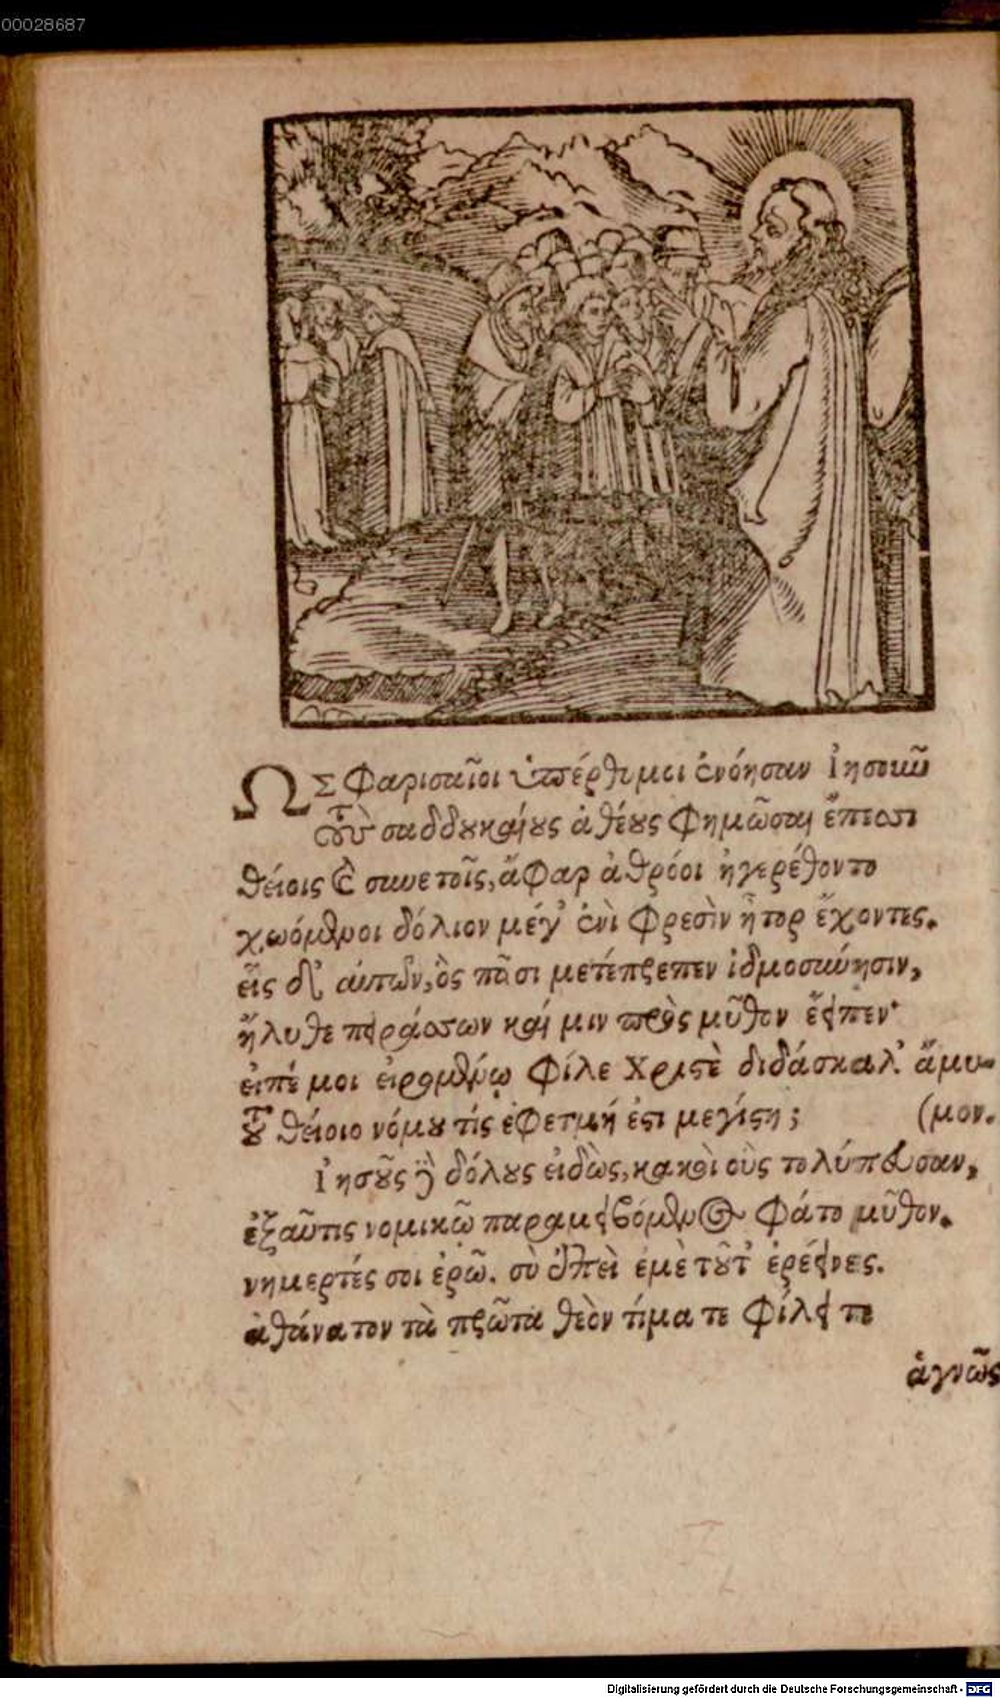 00028687
ΩΣ Φαρισαῖοι ὑπέρθυμοι ἐνόησαν Ἰησοιῶ
τοὺς σαδδουκαίους ἀθέους φημῶσαι ἔπεσσι
θείοις καὶ συνετοῖς, ἄφαρ ἀθρόοι ἠγερέθοντο
χωόμενοι δόλιον μέγ' ἐνὶ φρεσὶν ἦτορ ἔχοντες.
εἷς δ' αὐτῶν, ὃς πᾶσι μετέπρεπεν ἰδμοσύνησιν,
ἤλυθε πειράσσων καί μιν πρὸς μῦθον ἔειπεν·
εἰπέ μοι εἰρομένῳ φίλε Χριστὲ διδάσκαλ' ἄμυ-
τοῦ θείοιο νόμου τίς ἐφετμή ἐστι μεγίστη; (μον.
Ἰησοῦς δὲ δόλους εἰδὼς, κακοὶ οὓς τολύπευσαν,
ἐξαῦτις νομικῷ παραμειβόμενος φάτο μῦθον.
νημερτές σοι ἐρῶ. σὺ ἐπεὶ ἐμὲ τοῦτ' ἐρέεινες.
ἀθάνατον τὰ πρῶτα θεὸν τίμα τε φίλει τε
ἁγνῶς
Digitalisierung gefördert durch die Deutsche Forschungsgemeinschaft - DFG